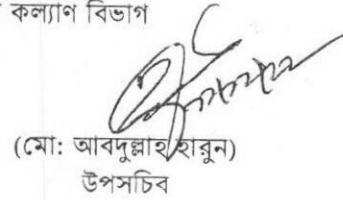 কল্যাণ বিভাগ
(মো: আবদুল্লাহ হারুন)
উপসচিব